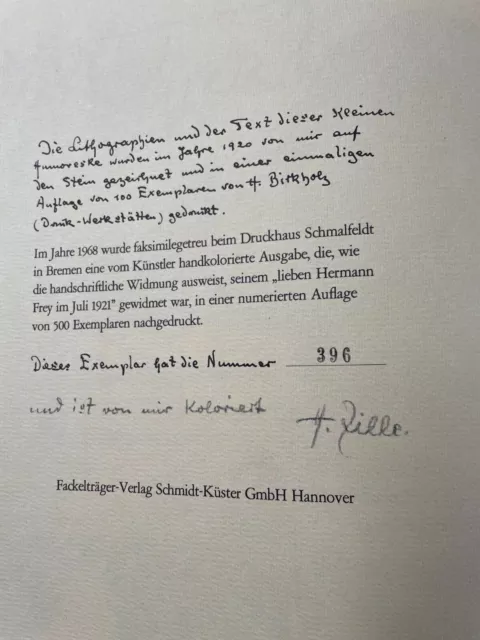 Die Lithographien und der Text dieser kleinen
Humoreske wurden im Jahre 1920 von mir auf
den Stein gezeichnet und in einer einmaligen
Auflage von 100 Exemplaren von H. Birkholz
(Druck-Werkstätten) gedruckt.
Im Jahre 1968 wurde faksimilegetreu beim Druckhaus Schmalfeldt
in Bremen eine vom Künstler handkolorierte Ausgabe, die, wie
die handschriftliche Widmung ausweist, seinem „lieben Hermann
Frey im Juli 1921" gewidmet war, in einer numerierten Auflage
von 500 Exemplaren nachgedruckt.
Dieses Exemplar hat die Nummer 396
und ist von mir koloriert H. Zille.
Fackelträger-Verlag Schmidt-Küster GmbH Hannover